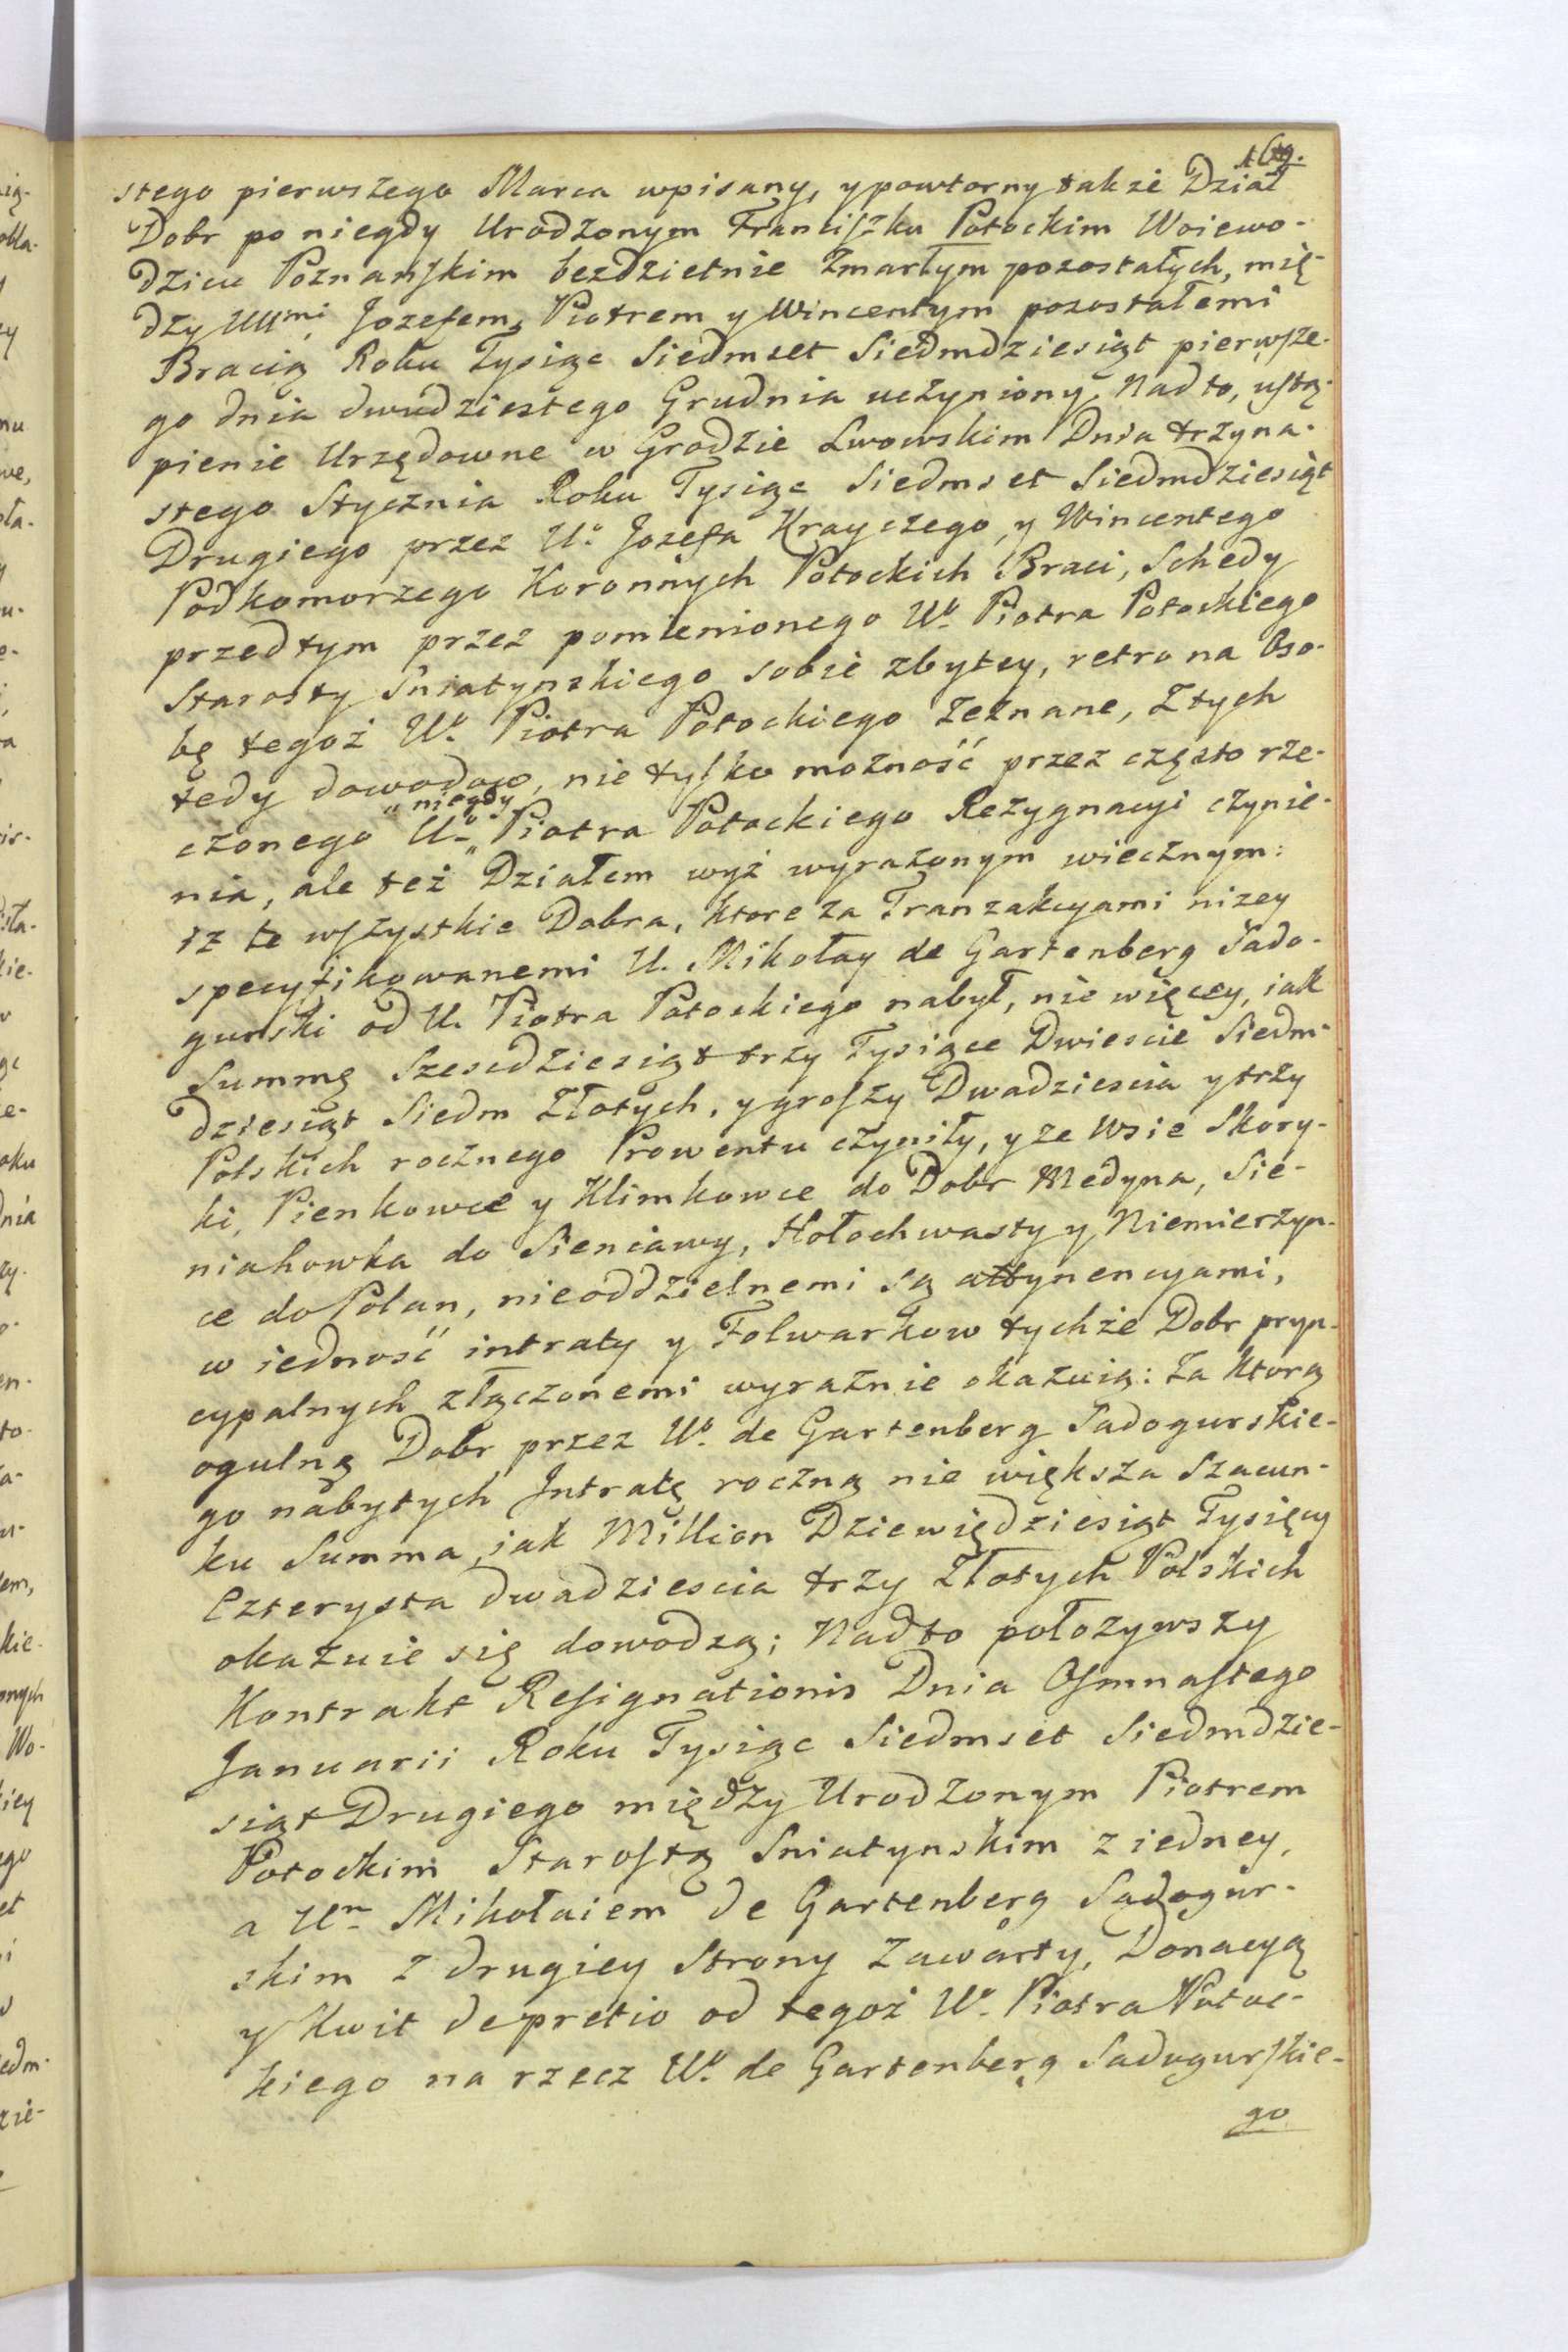 169.
stego pierwszego Marca wpisany, y powtorny takze Dział
Dobr po niegdy Urodzonym Franciszku Potockim Woiewo-
dzicu Poznanskim bezdzietnie zmarłym pozostałych, mię-
dzy UUmi Jozefem, Piotrem y Wincentym pozostałemi
Bracią Roku Tysiąc Siedmset Siedmdziesiąt pierwsze-
go dnia dwudziestego Grudnia uczyniony, Nadto, ustą-
pienie Urzędowne w Grodzie Lwowskim Dnia trzyna-
stego Stycznia Roku Tysiąc Siedmset Siedmdziesiąt
Drugiego przez Uo Jozefa Krayczego, y Wincentego
Podkomorzego Koronnych Potockich Braci, Schedy
przedtym przez pomienionego Uo Piotra Potockiego
Starosty Sniatynskiego sobie zbytey, retro na Oso-
bę tegoż Uo Piotra Potockiego zeznane, z tych
tedy dowodow, nie tylko możność przez często rze-
czonego Uo „niegdy„ Piotra Potockiego Rezygnacyi czynie-
nia, ale też Działem wyż wyrażonym wiecznym:
iz te wszystkie Dobra, ktore za Tranzakcyami nizey
specyfikowanemi U. Mikołay de Gartenberg Sado-
gurski od U. Piotra Potockiego nabył, nie więcey, iak
Summę Szescdziesiąt trzy Tysiące Dwiescie Siedm-
dziesiąt Siedm Złotych, y groszy Dwadziescia y trzy
Polskich rocznego Prowentu czyniły, y ze Wsie Skory-
ki, Pienkowce y Klimkowce do Dobr Medyna, Sie-
niahowka do Sieniawy, Hołochwasty y Niemierzyn-
ce do Polan, nieoddzielnemi są attynencyami,
w iedność intraty y Folwarkow tychże Dobr pryn-
cypalnych złączonemi wyraznie okazuią: za ktorą
ogulną Dobr przez Uo de Gartenberg Sadogurskie-
go nabytych Intratę roczną nie większa Szacun-
ku Summa, iak Million Dziewiędziesiąt Tysięcy
Czterysta dwadziescia trzy Złotych Polskich
okazuie się dowodzą; Nadto położywszy
Kontrakt Resignationis Dnia Osmnastego
Januarii Roku Tysiąc Siedmset Siedmdzie-
siąt Drugiego między Urodzonym Piotrem
Potockim Starostą Sniatynskim z iedney,
a Um Mikołaiem de Gartenberg Sadogur-
skim z drugiey Strony zawarty, Donacyą
y Kwit de pretio od tegoż Uo Piotra Potoc-
kiego na rzecz Uo de Gartenberg Sadogurskie-
go